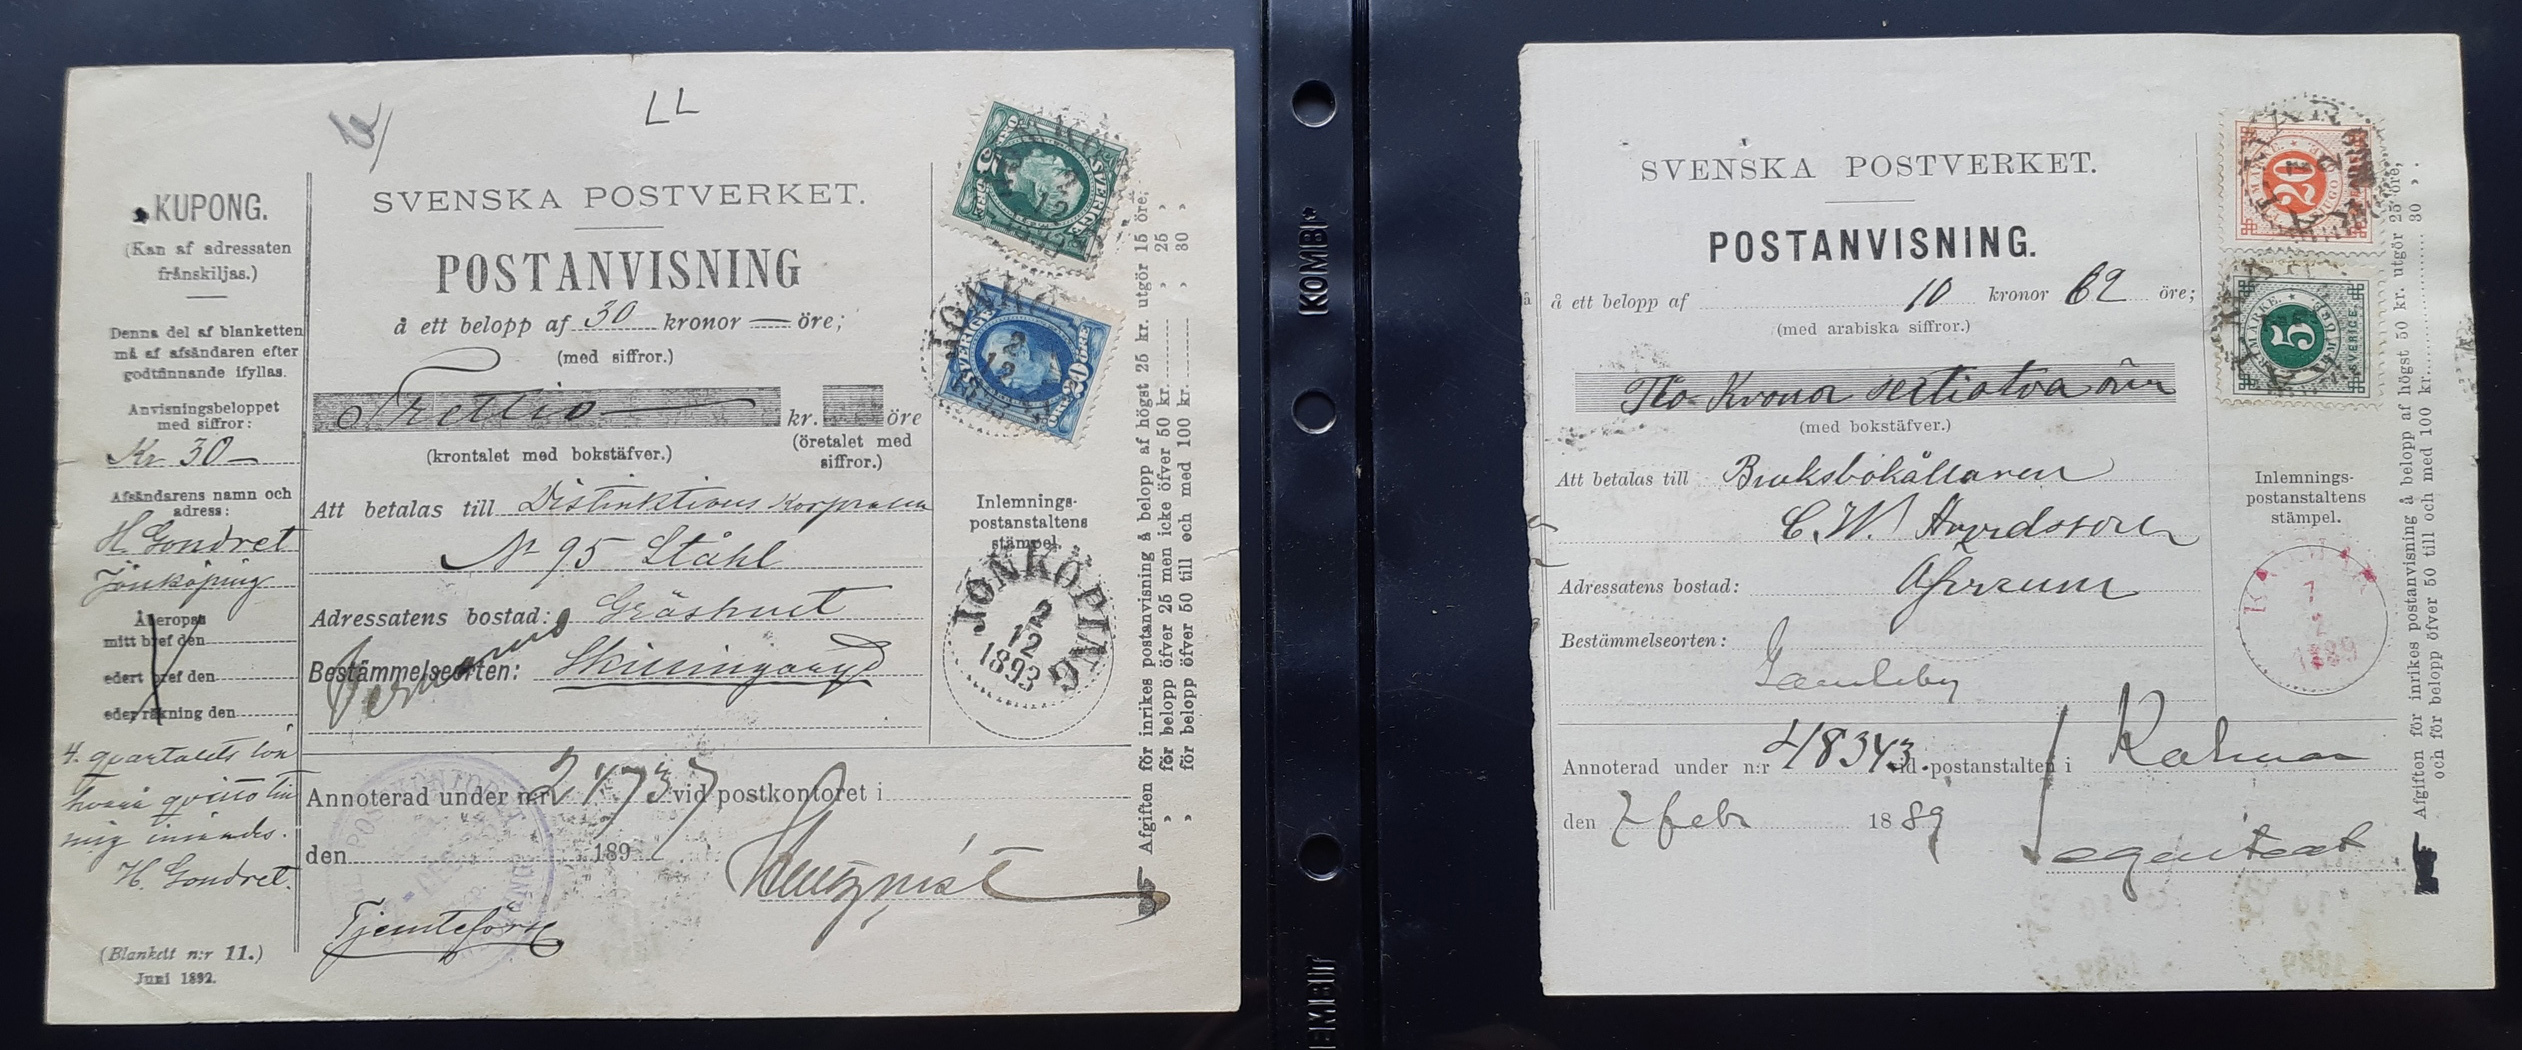 LL
KUPONG.
(Kan af adressaten
frånskiljas.)
Denna del af blanketten
må af afsändaren efter
godtfinnande ifyllas.
Anvisningsbeloppet
med siffror:
Kr 30—
Afsändarens namn och
adress:
H. Gondret
Jönköping
Åberopa
mitt bref den
edert bref den
eder räkning den
4. qvartalets lön
mig
H. Gondret.
(Blankett n:r 11.)
Juni 1892.
SVENSKA POSTVERKET.
POSTANVISNING
å ett belopp af 30 kronor — öre;
(med siffror.)
Trettio— kr. öre
(krontalet med bokstäfver.)
(öretalet med
siffror.)
Att betalas till Distinktions Korpralen
Nr 95 Ståhl
Adressatens bostad: Gräshult
Bestämmelseorten: Skillingaryd
Annoterad under n:r 24737 vid postkontoret i
den 189
Tjensteförs
SVERIGE
5
SVERIGE
20
ÖRE
JÖNKÖPING
2
12
1893
Inlemnings-
postanstaltens
stämpel.
JÖNKÖPING
2
12
1893
Afgiften för inrikes postanvisning å belopp af högst 25 kr. utgör 15 öre;
» för belopp öfver 25 men icke öfver 50 kr. » 25 »
» för belopp öfver 50 till och med 100 kr. » 30 »
KOMBI
SVENSKA POSTVERKET.
POSTANVISNING.
å ett belopp af 10 kronor 62 öre;
(med arabiska siffror.)
Tio Kronor sextiotva öre
(med bokstäfver.)
Att betalas till Bruksbokållaren
C. W.
Adressatens bostad:
Bestämmelseorten:
Gamleby
Annoterad under n:r 48343 vid postanstalten i Kalmar
den 7 febr 1889
20
5
SVERIGE
KALMAR
Inlemnings-
postanstaltens
stämpel.
KALMAR
7
2
1889
Afgiften för inrikes postanvisning å belopp af högst 50 kr. utgör 25 öre,
och för belopp öfver 50 till och med 100 kr. 30 ».